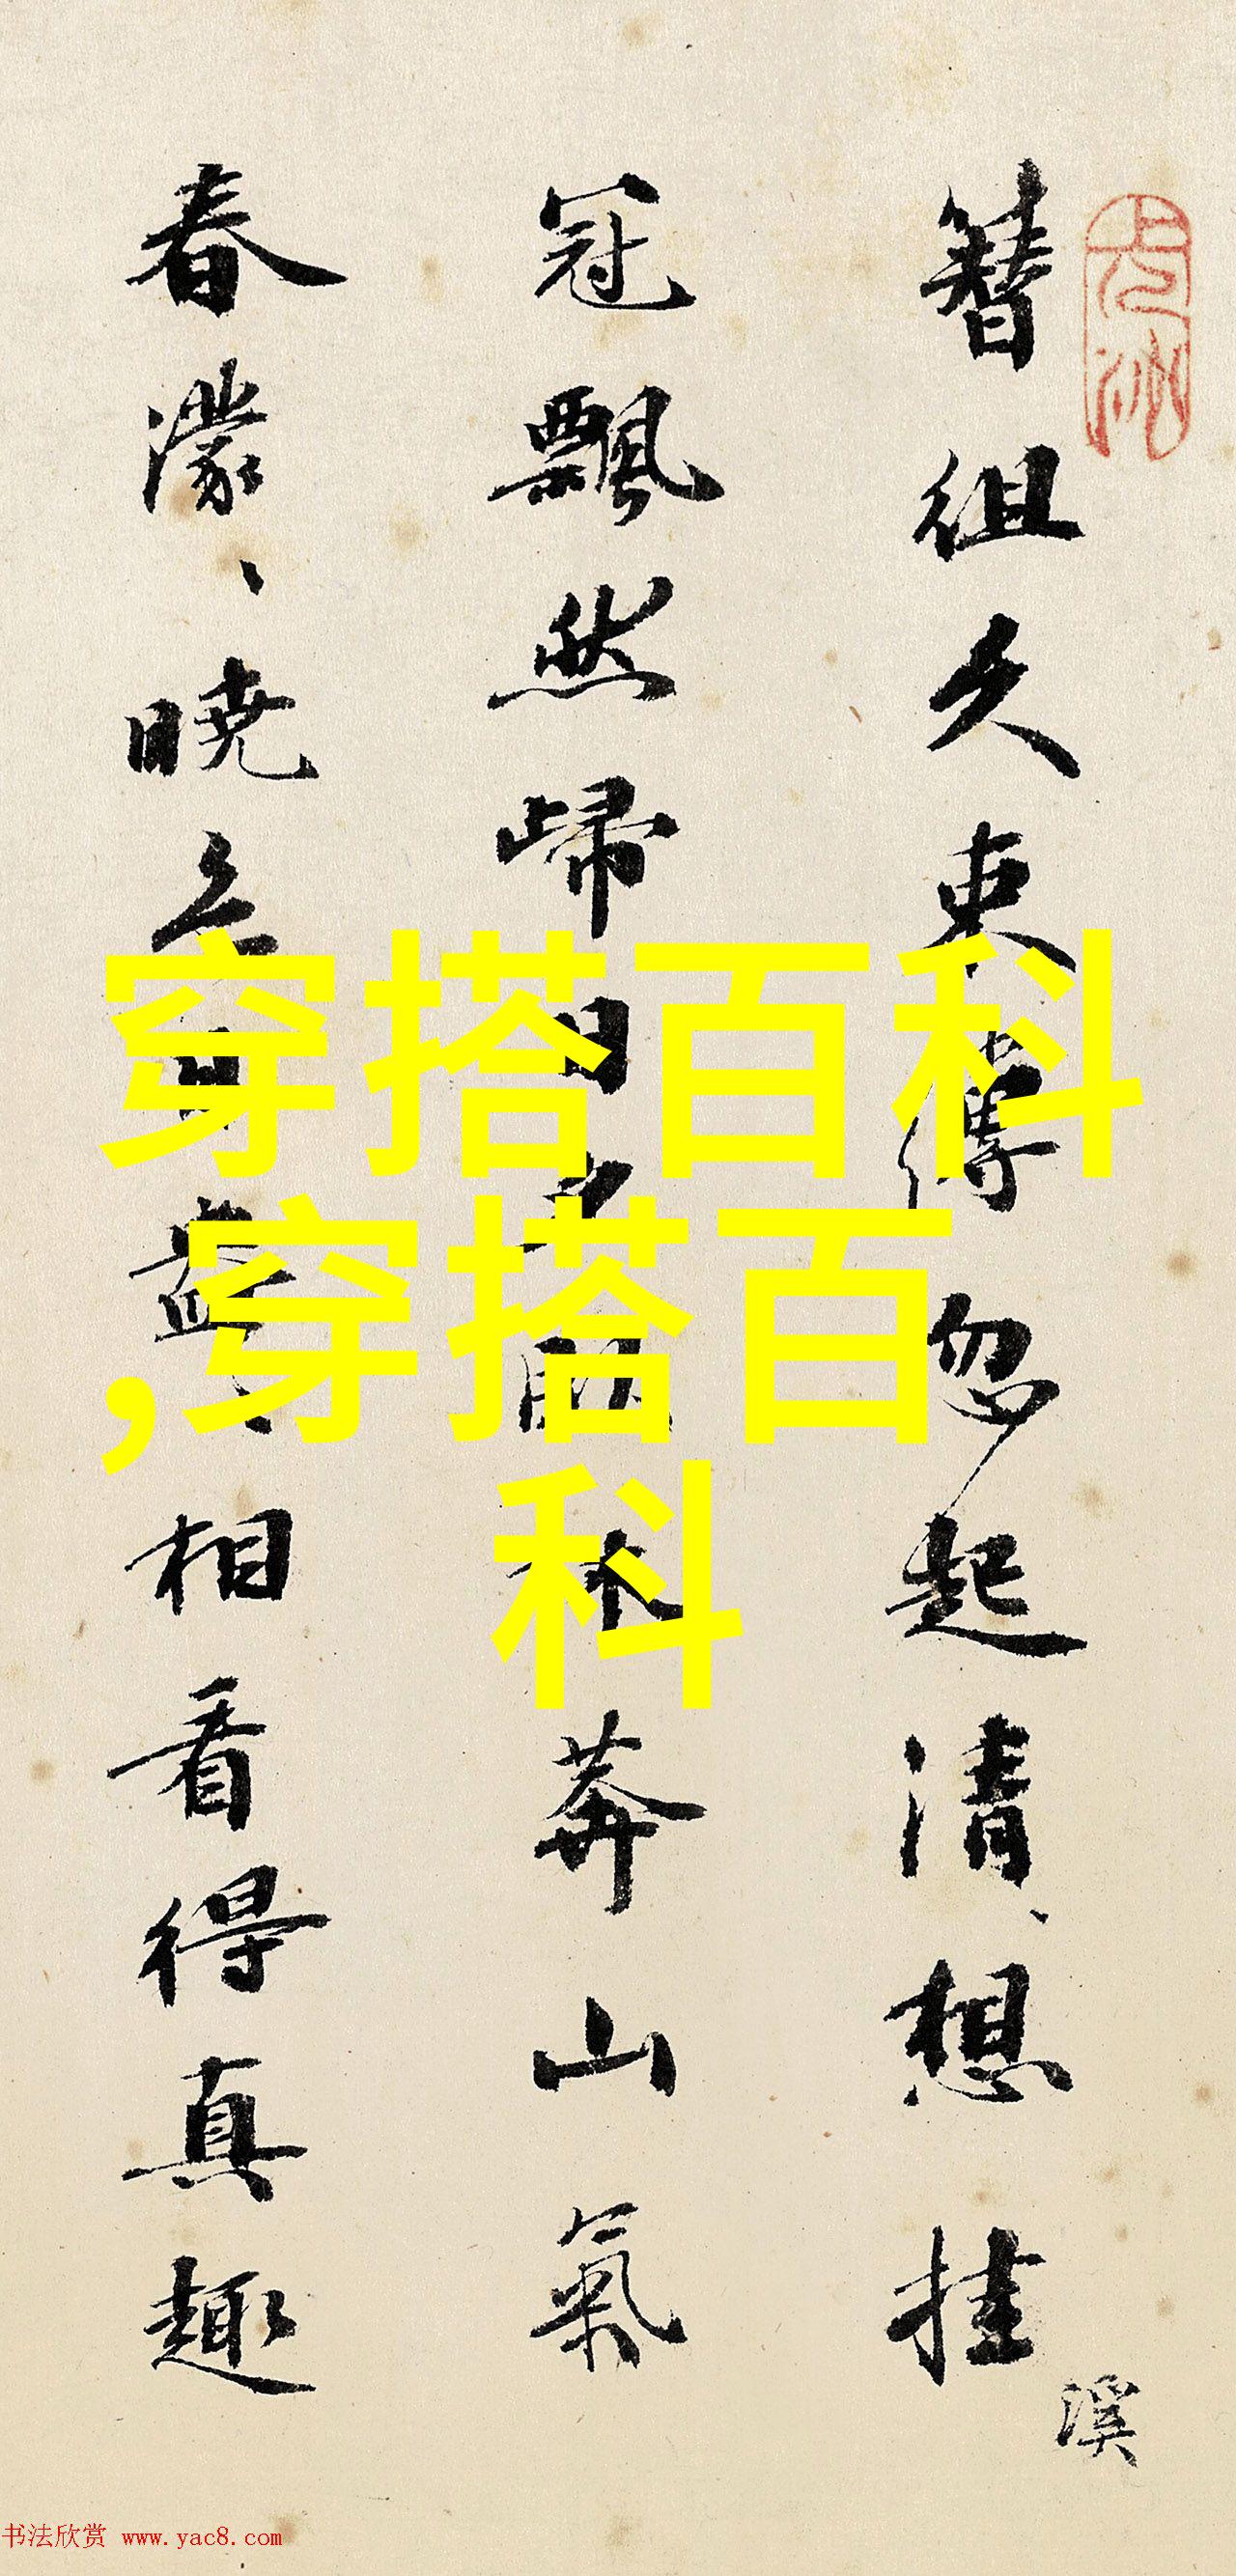 簪组久束缚忽起清、想挂
冠飘然歸
莽山氣
春濛、暁
相看得真趣
溪
穿搭百科
,穿搭百
科
书法欣赏 www.yac8.com